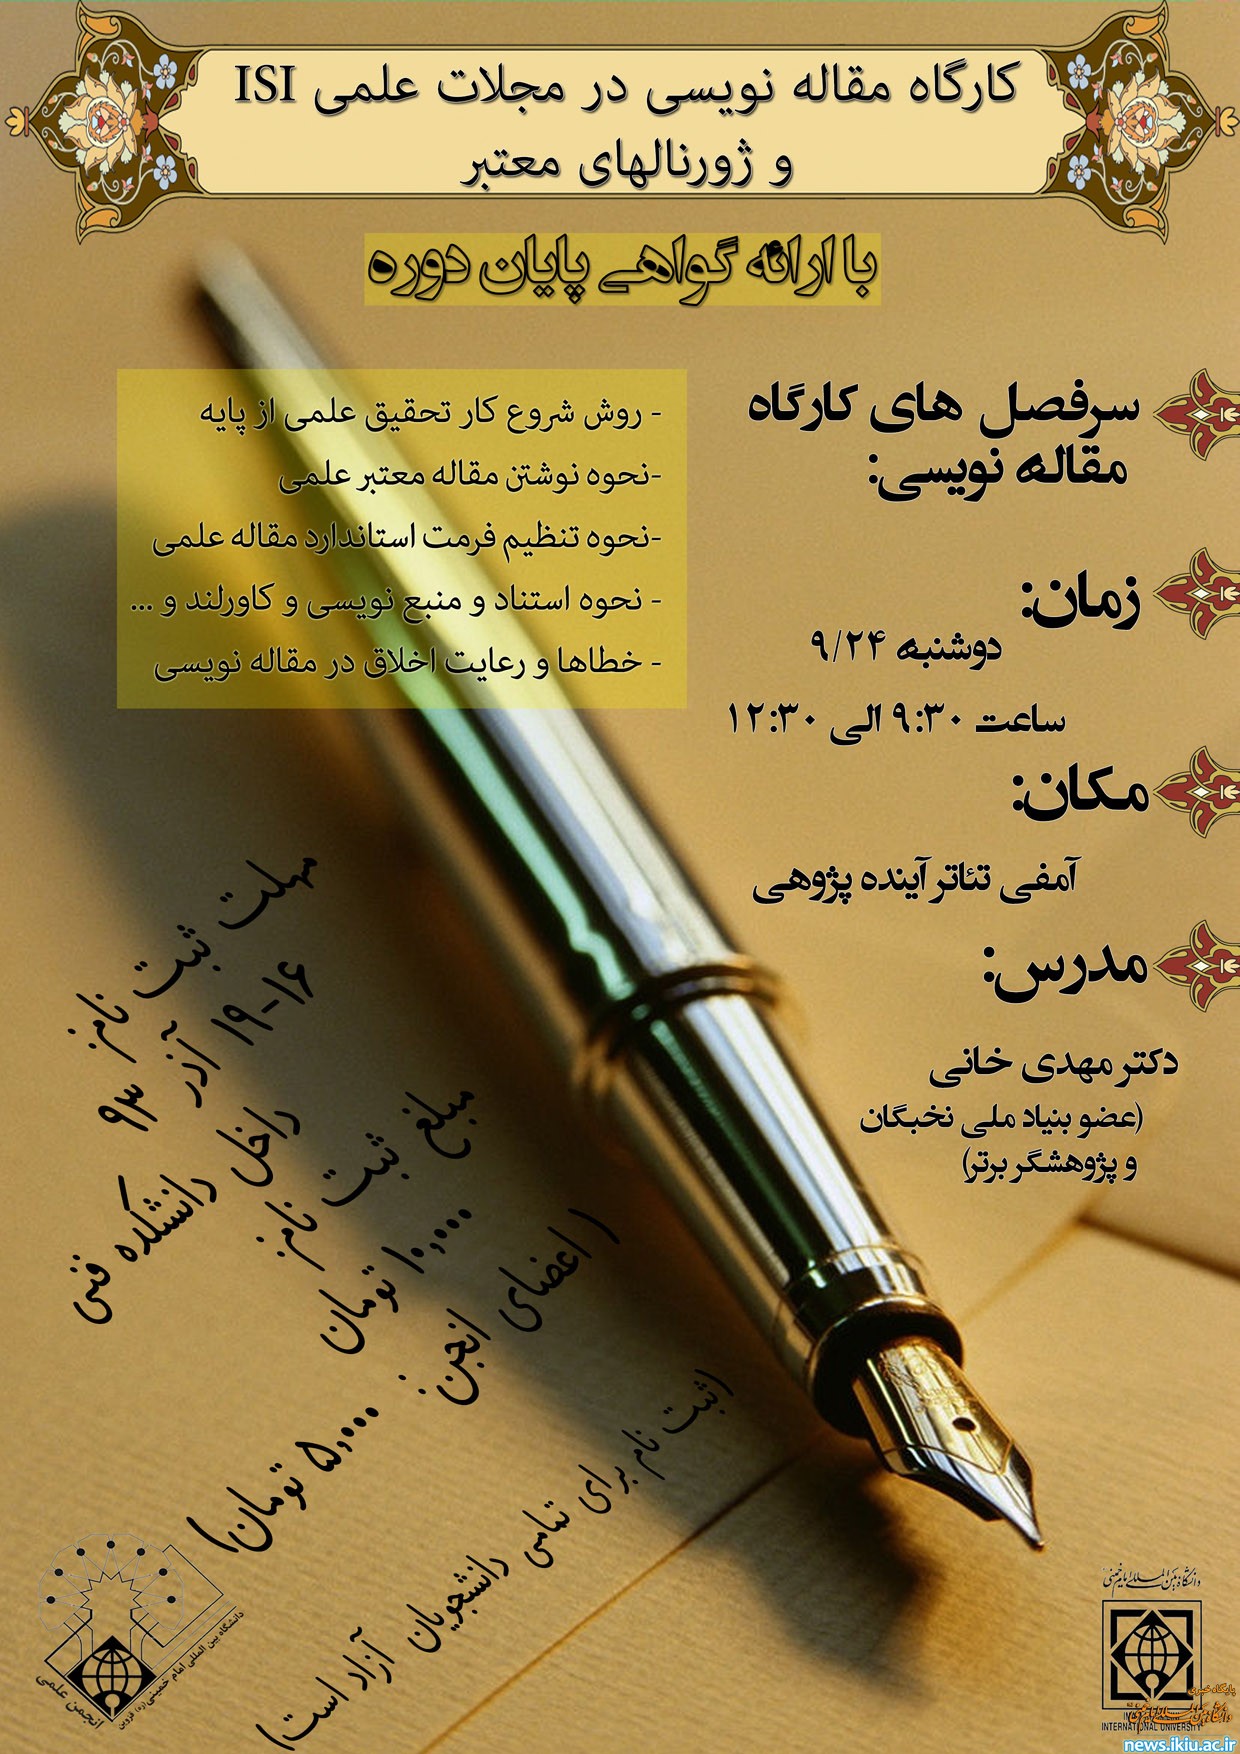 کارگاه مقاله نویسی در مجلات علمی ISI
و ژورنالهای معتبر
با ارائه گواهی پایان دوره
سرفصل های کارگاه
مقاله نویسی:
- روش شروع کار تحقیق علمی از پایه
-نحوه نوشتن مقاله معتبر علمی
-نحوه تنظیم فرمت استاندارد مقاله علمی
- نحوه استناد و منبع نویسی و کاورلند و ...
- خطاها و رعایت اخلاق در مقاله نویسی
زمان:
دوشنبه ۹/۲۴
ساعت ۹:۳۰ الی ۱۲:۳۰
مکان:
آمفی تئاتر آینده پژوهی
مدرس:
دکتر مهدی خانی
(عضو بنیاد ملی نخبگان
و پژوهشگر برتر)
مهلت ثبت نام:
۱۶-۱۹ آذر ۹۳
داخل دانشکده فنی
مبلغ ثبت نام:
۱۰,۰۰۰ تومان
(اعضای انجمن:
۵,۰۰۰ تومان)
(ثبت نام برای تمامی دانشجویان آزاد است)
دانشگاه بین المللی امام خمینی(ره) قزوین
انجمن علمی
دانشگاه بین المللی امام خمینی
INTERNATIONAL UNIVERSITY
پایگاه خبری
دانشگاه بین المللی امام خمینی
news.ikiu.ac.ir